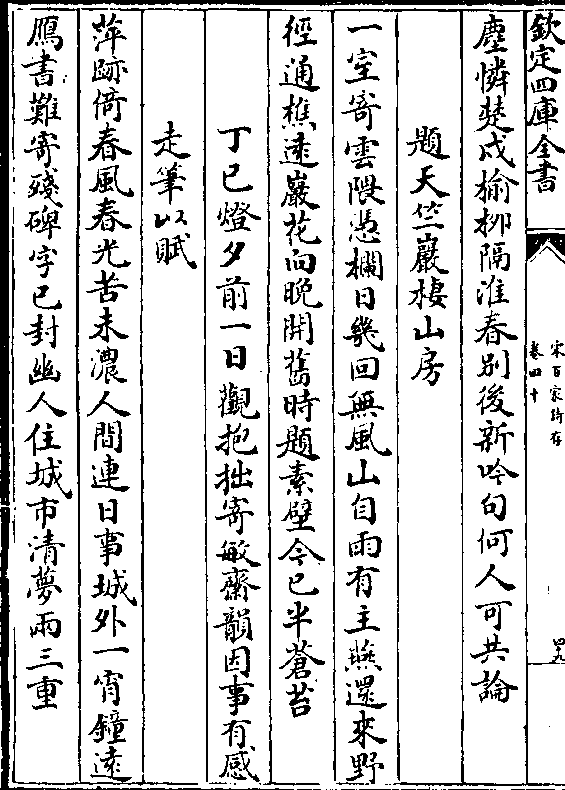 欽定四庫全書
宋百家詩存
卷四十
四九
塵憐楚戍榆栁隔淮春别後新吟句何人可共論
題天竺巖棲山房
一室寄雲隈憑欄日幾回無風山自雨有主燕還來野
徑通樵遠巖花向晚開舊時題素壁今已半蒼苔
丁巳燈夕前一日觀抱拙寄敏齋韻因事有感
走筆以賦
萍跡倚春風春光苦未濃人間連日事城外一宵鐘遠
鴈書難寄殘碑字已封幽人住城市清夢兩三重